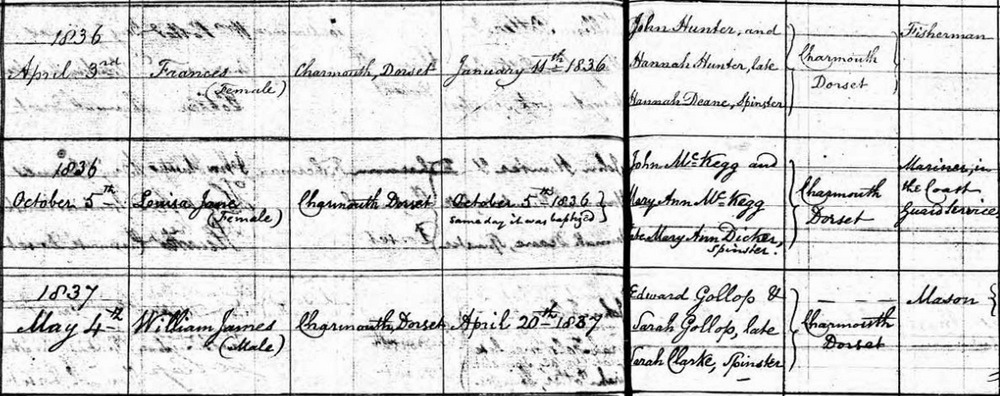 1836
April 3rd
Frances
(Female)
Charmouth, Dorset
January 11th 1836
John Hunter, and
Hannah Hunter, late
Hannah Deane, Spinster
Charmouth
Dorset
Fisherman
1836
October 5th
Louisa Jane
(Female)
Charmouth Dorset
October 5th 1836
same day it was baptized
John McKegg and
Mary Ann McKegg
late Mary Ann Dicker,
spinster.
Charmouth
Dorset
Mariner, in
the Coast
Guard Service
1837
May 4th
William James
(Male)
Charmouth, Dorset
April 20th 1837
Edward Gollop &
Sarah Gollop, late
Sarah Clarke, Spinster
Charmouth
Dorset
Mason